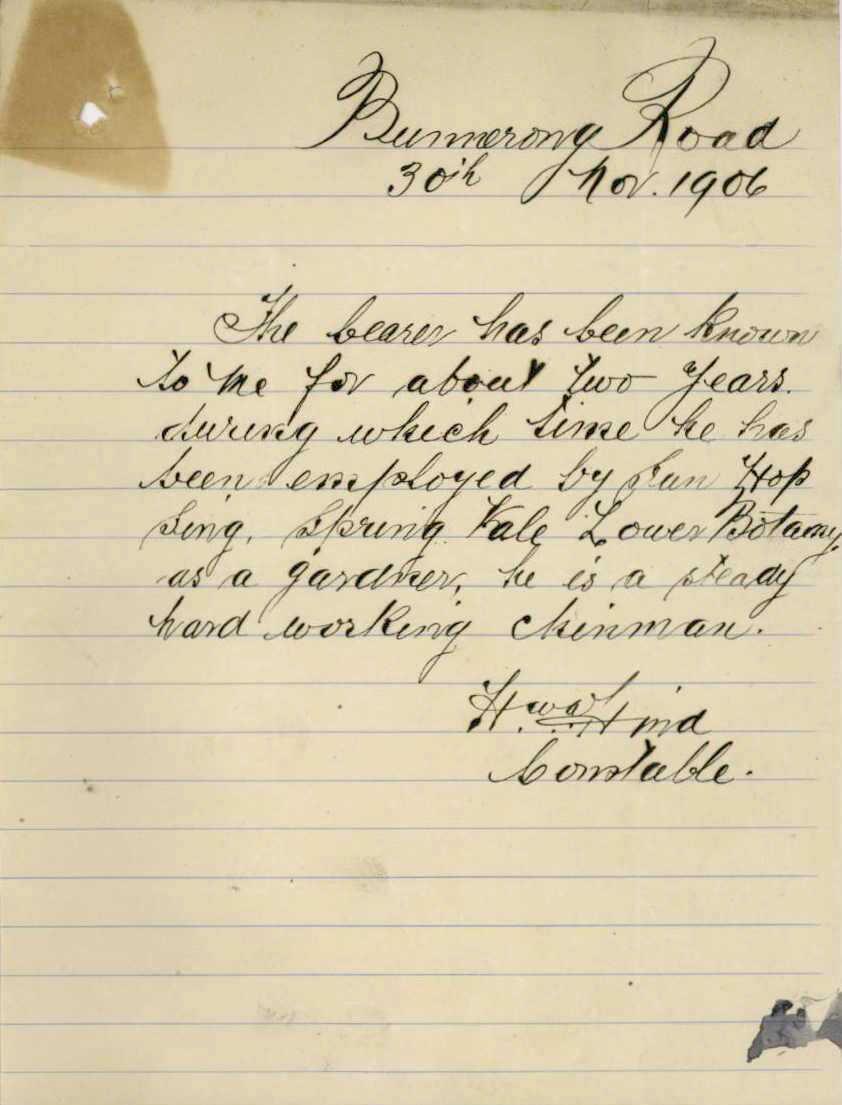 Bunnerong Road
30th Nov. 1906
The bearer has been known
to me for about two years.
during which time he has
been employed by Sun Hop
Sing, Spring Vale Lower Botany,
as a gardner, he is a steady
hard working chinman.
Hind
Constable.